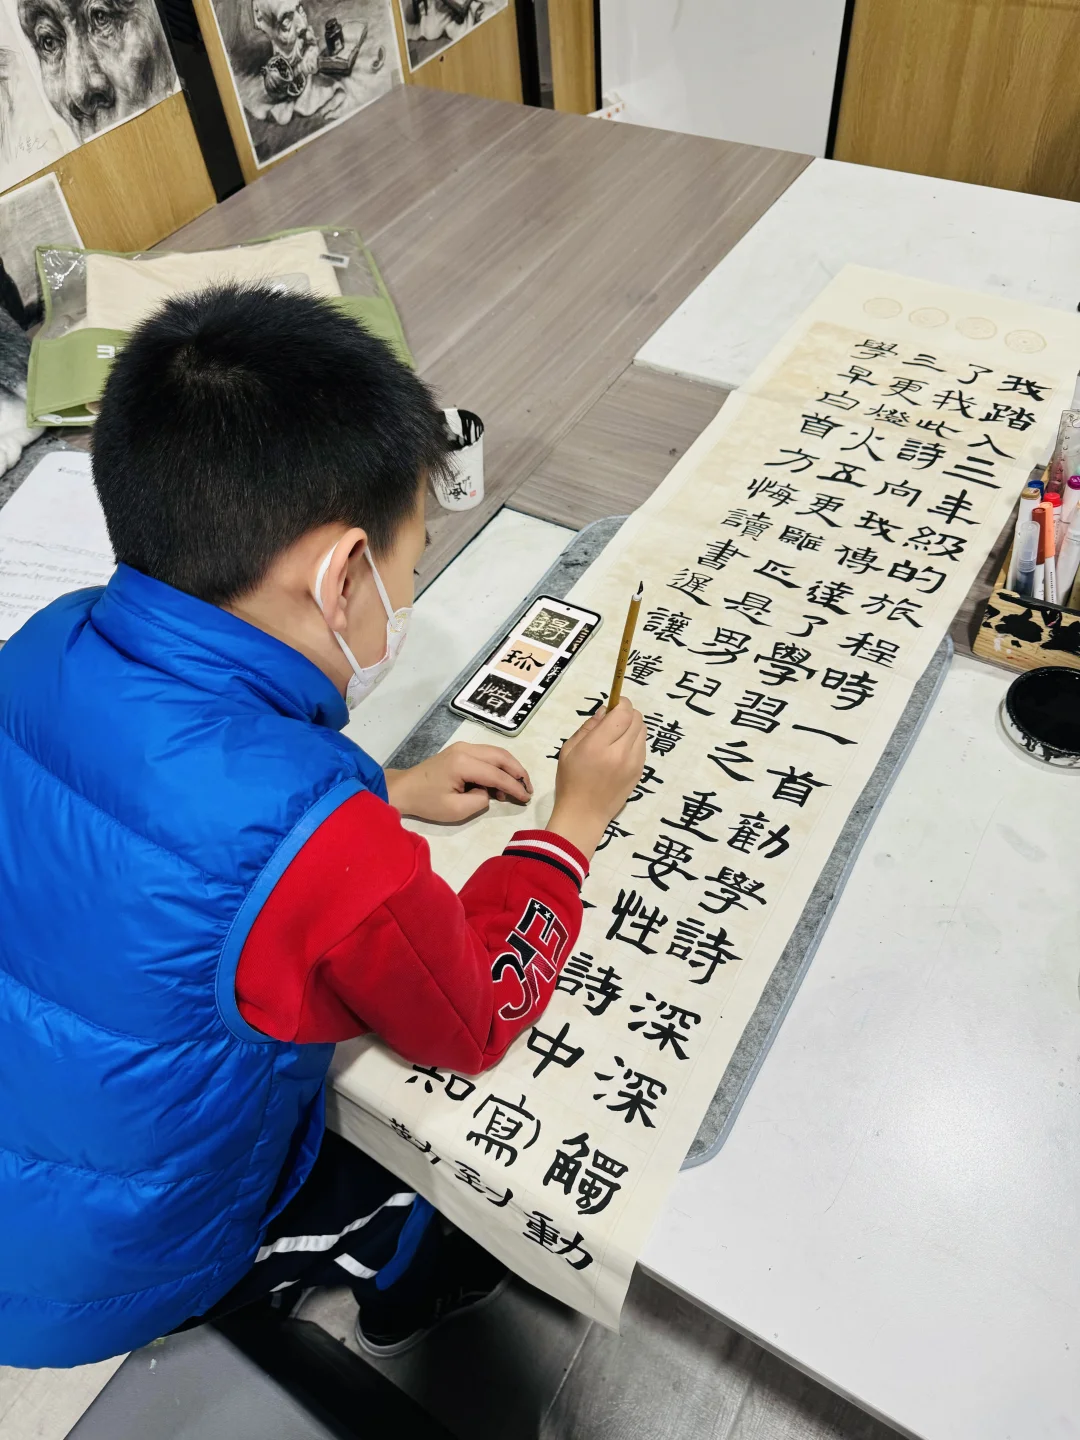 我踏入三年級的旅程時一首勸學詩深深觸動
了我此詩向我傳達了學習之重要性詩中(寫)到
三更燈火五更雞正是男兒讀書時知勤
學早白首方悔讀書遲讓懂
珍
惜